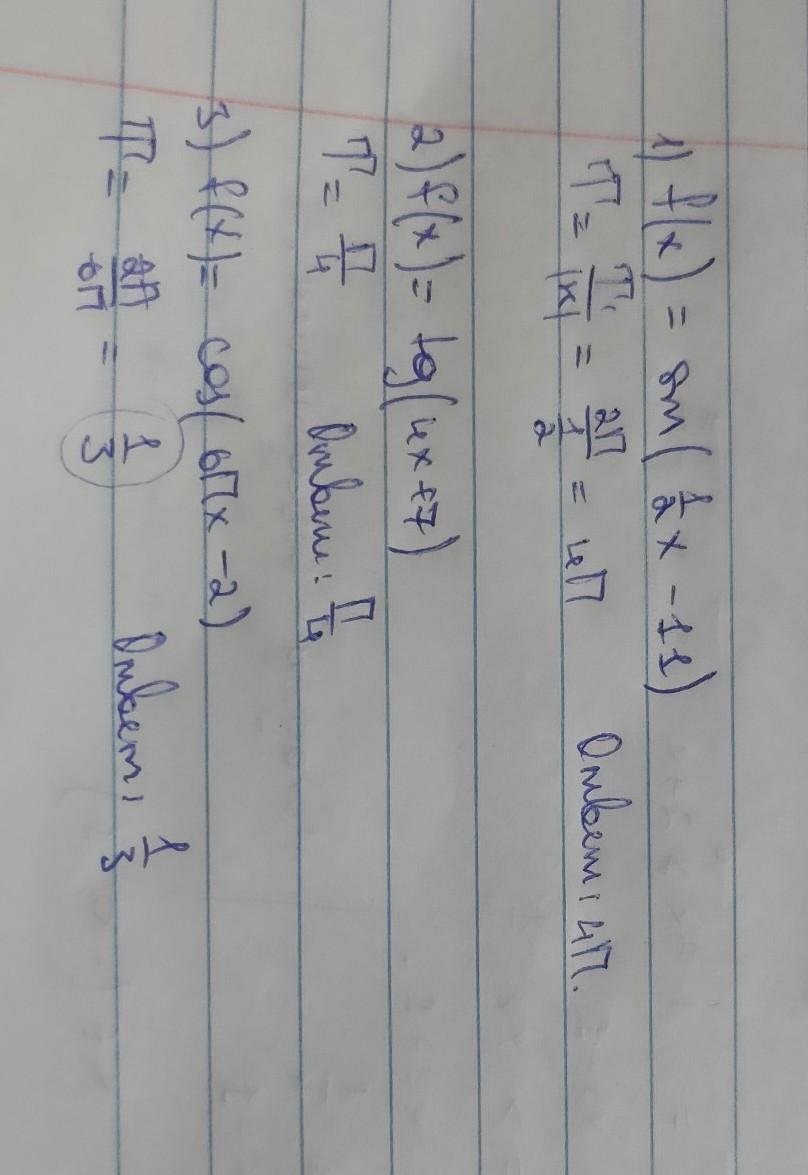 1) f(x) = sin(1/2 x - 11)
T = T₁/|k| = 2П/(1/2) = 4П Ответ: 4П.
2) f(x) = tg(4x+7)
T = П/4 Ответ: П/4
3) f(x) = cos(6Пx - 2)
T = 2П/6П = 1/3 Ответ: 1/3